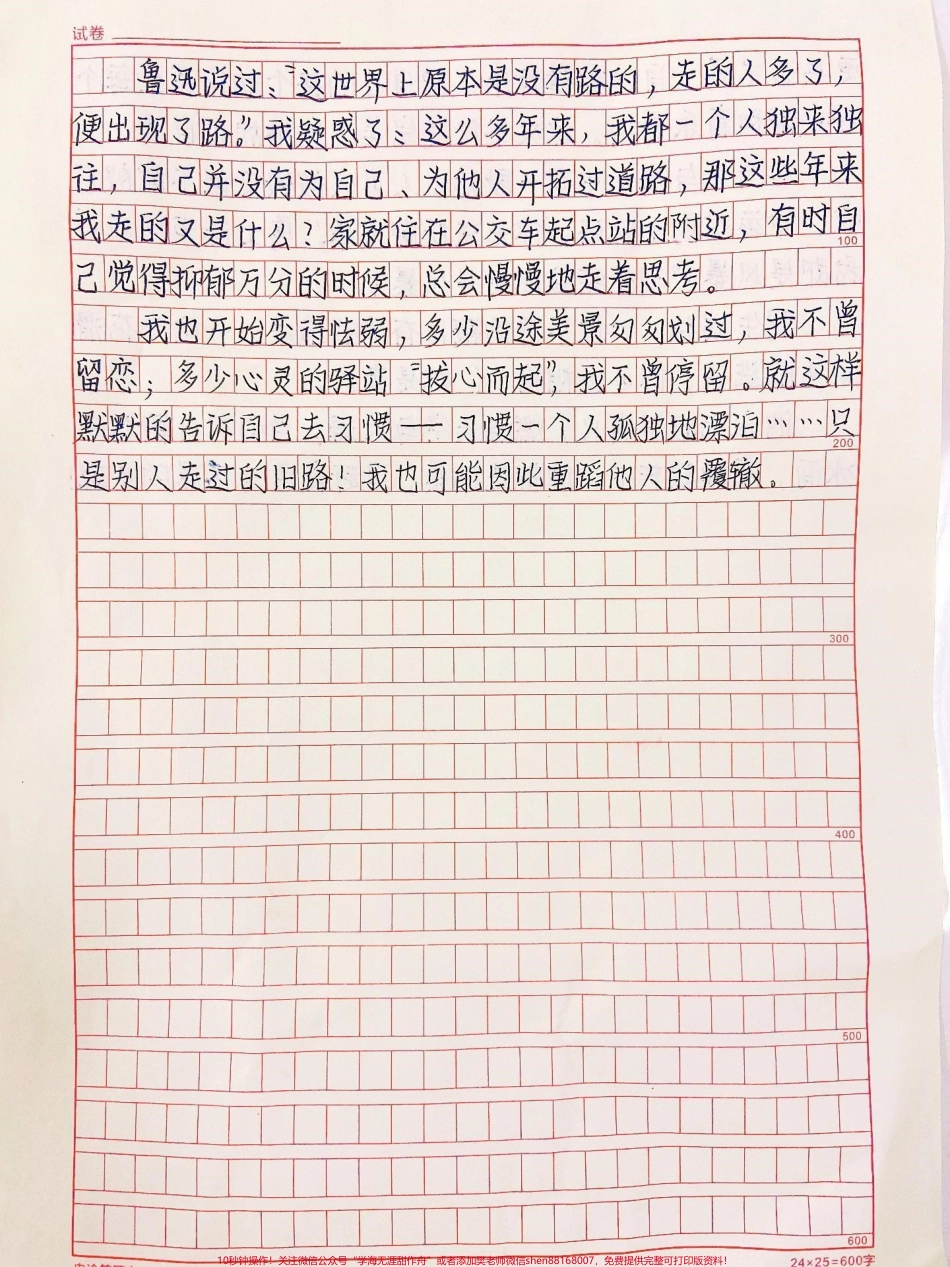 试卷
鲁迅说过：“这世界上原本是没有路的，走的人多了，
便出现了路。”我疑惑了：这么多年来，我都一个人独来独
往，自己并没有为自己、为他人开拓过道路，那这些年来
我走的又是什么？家就住在公交车起点站的附近，有时自
100
己觉得抑郁万分的时候，总会慢慢地走着思考。
我也开始变得怯弱，多少沿途美景匆匆划过，我不曾
留恋；多少心灵的驿站“拔心而起”，我不曾停留。就这样
默默的告诉自己去习惯——习惯一个人孤独地漂泊……只
200
是别人走过的旧路！我也可能因此重蹈他人的覆辙。
300
400
500
600
10秒钟操作！关注微信公众号“学海无涯甜作舟”或者添加樊老师微信shen88168007，免费提供完整可打印版资料！
24×25=600字